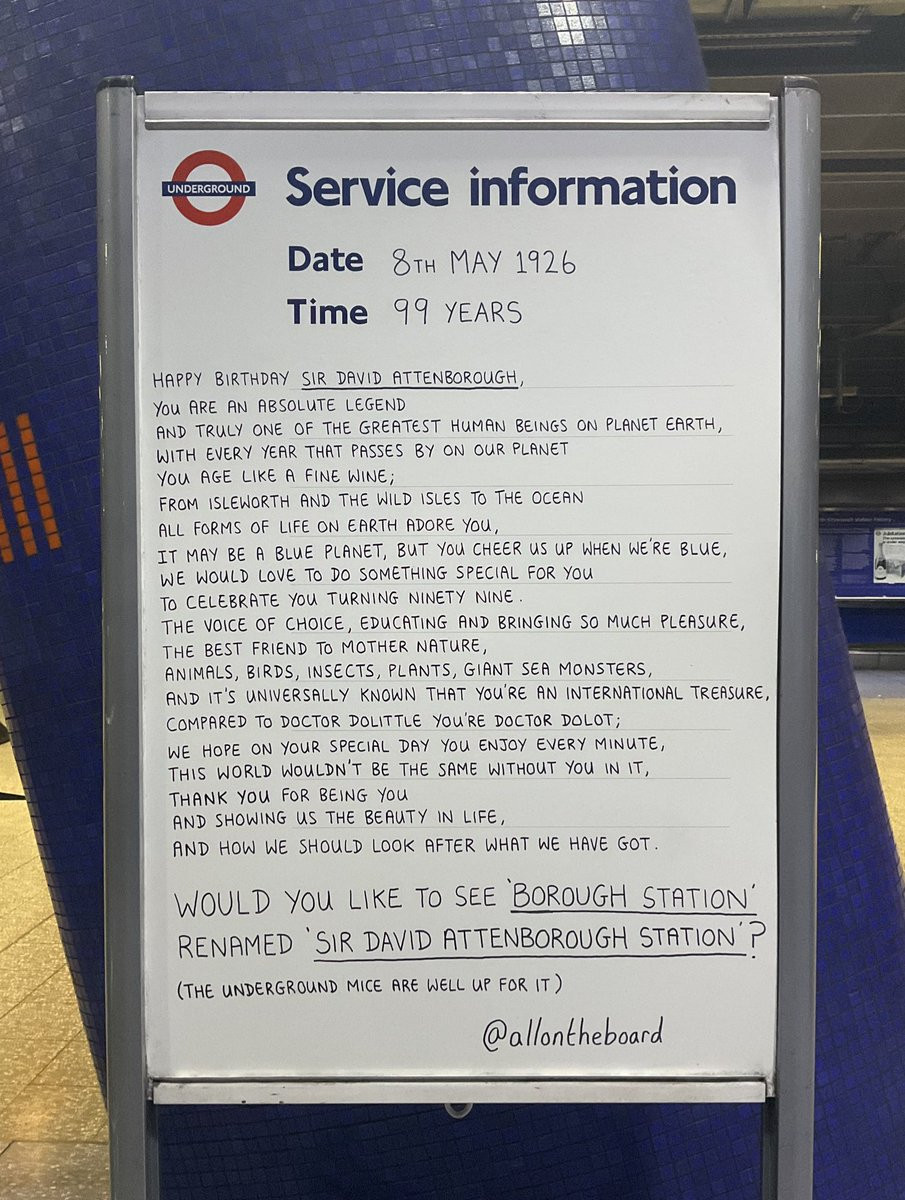 UNDERGROUND
Service information
Date 8TH MAY 1926
Time 99 YEARS
HAPPY BIRTHDAY SIR DAVID ATTENBOROUGH,
YOU ARE AN ABSOLUTE LEGEND
AND TRULY ONE OF THE GREATEST HUMAN BEINGS ON PLANET EARTH,
WITH EVERY YEAR THAT PASSES BY ON OUR PLANET
YOU AGE LIKE A FINE WINE;
FROM ISLEWORTH AND THE WILD ISLES TO THE OCEAN
ALL FORMS OF LIFE ON EARTH ADORE YOU,
IT MAY BE A BLUE PLANET, BUT YOU CHEER US UP WHEN WE'RE BLUE,
WE WOULD LOVE TO DO SOMETHING SPECIAL FOR YOU
TO CELEBRATE YOU TURNING NINETY NINE.
THE VOICE OF CHOICE, EDUCATING AND BRINGING SO MUCH PLEASURE,
THE BEST FRIEND TO MOTHER NATURE,
ANIMALS, BIRDS, INSECTS, PLANTS, GIANT SEA MONSTERS,
AND IT'S UNIVERSALLY KNOWN THAT YOU'RE AN INTERNATIONAL TREASURE,
COMPARED TO DOCTOR DOLITTLE YOU'RE DOCTOR DOLOT;
WE HOPE ON YOUR SPECIAL DAY YOU ENJOY EVERY MINUTE,
THIS WORLD WOULDN'T BE THE SAME WITHOUT YOU IN IT,
THANK YOU FOR BEING YOU
AND SHOWING US THE BEAUTY IN LIFE,
AND HOW WE SHOULD LOOK AFTER WHAT WE HAVE GOT.
WOULD YOU LIKE TO SEE 'BOROUGH STATION'
RENAMED 'SIR DAVID ATTENBOROUGH STATION'?
(THE UNDERGROUND MICE ARE WELL UP FOR IT)
@allontheboard